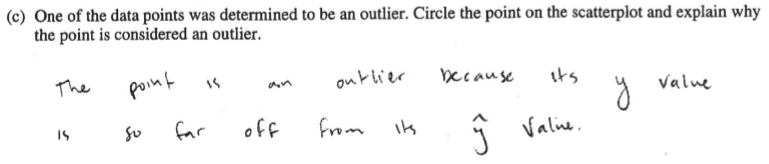 (c) One of the data points was determined to be an outlier. Circle the point on the scatterplot and explain why
the point is considered an outlier.
The point is an outlier because its y value
is so far off from its ŷ value.